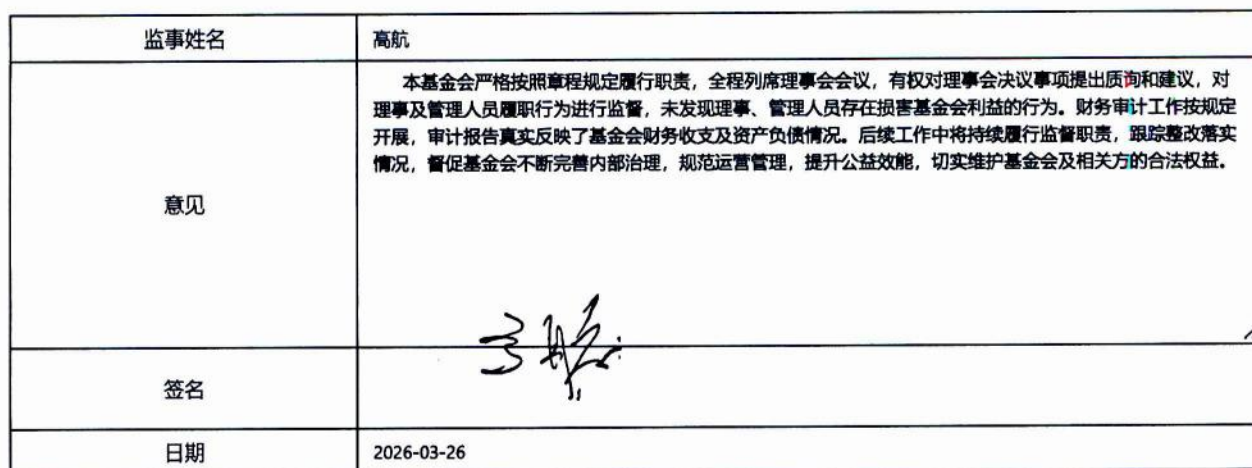 监事姓名
高航
本基金会严格按照章程规定履行职责，全程列席理事会会议，有权对理事会决议事项提出质询和建议，对
理事及管理人员履职行为进行监督，未发现理事、管理人员存在损害基金会利益的行为。财务审计工作按规定
开展，审计报告真实反映了基金会财务收支及资产负债情况。后续工作中将持续履行监督职责，跟踪整改落实
情况，督促基金会不断完善内部治理，规范运营管理，提升公益效能，切实维护基金会及相关方的合法权益。
意见
签名
日期
2026-03-26